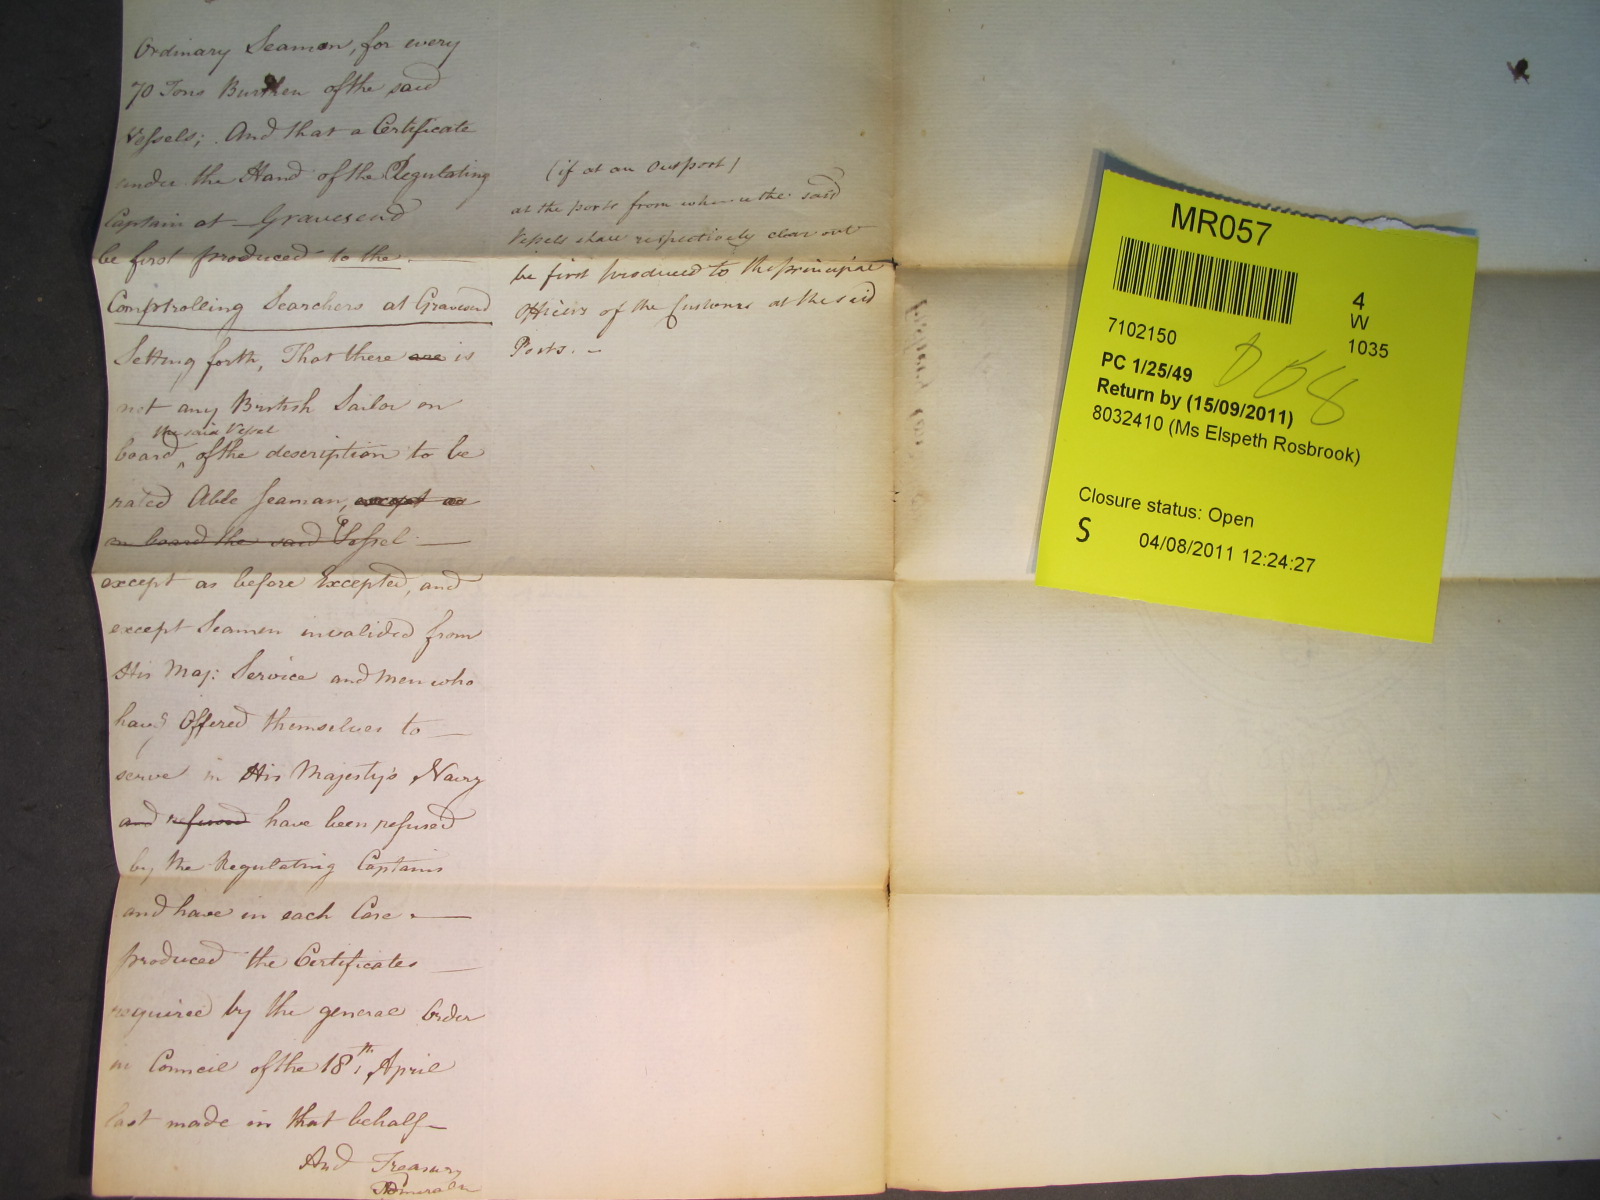 Ordinary Seaman, for every
70 Tons Burthen of the said
Vessels; And that a Certificate
under the Hand of the Regulating
Captain at Gravesend
be first produced to the
Comptrolling Searchers at Gravesend
Setting forth, That there are is
not any British Sailor on
the said Vessel
board ^ of the description to be
rated Able Seaman, except as
on board the said Vessel
except as before Excepted, and
except Seamen invalided from
His Maj: Service and Men who
have Offered themselves to
serve in His Majesty's Navy
and refused have been refused
by the Regulating Captains
and have in each Case
produced the Certificates
required by the general Order
in Council of the 18th April
last made in that behalf
And Treasury
Admiralty
(if at an Outport)
at the ports from whence the said
Vessels shall respectively clear out
be first produced to the principal
Officers of the Customs at the said
Ports.
MR057
4
W
1035
7102150
PC 1/25/49
Return by (15/09/2011)
8032410 (Ms Elspeth Rosbrook)
Closure status: Open
S
04/08/2011 12:24:27